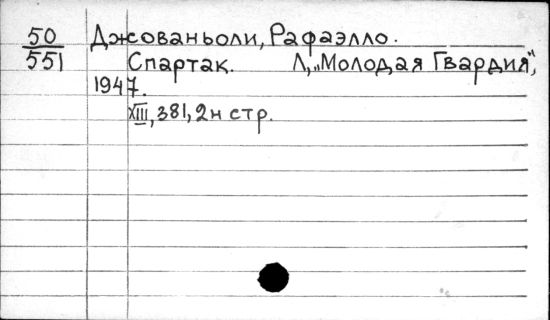 50 Джованьоли, Рафаэлло.
551 Спартак. Л, „Молодая Гвардия",
1947.
XIII, 381, 2н стр.